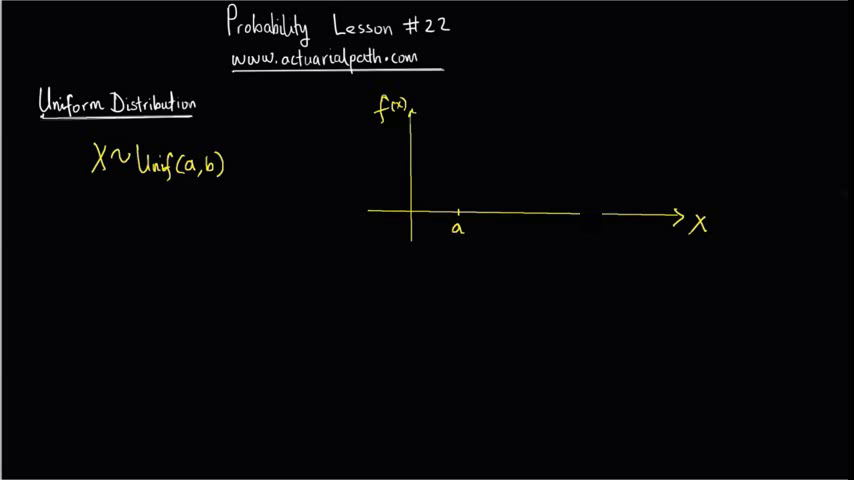 Probability Lesson #22
www.actuarialpath.com
Uniform Distribution
X~Unif(a,b)
f(x)
a
X